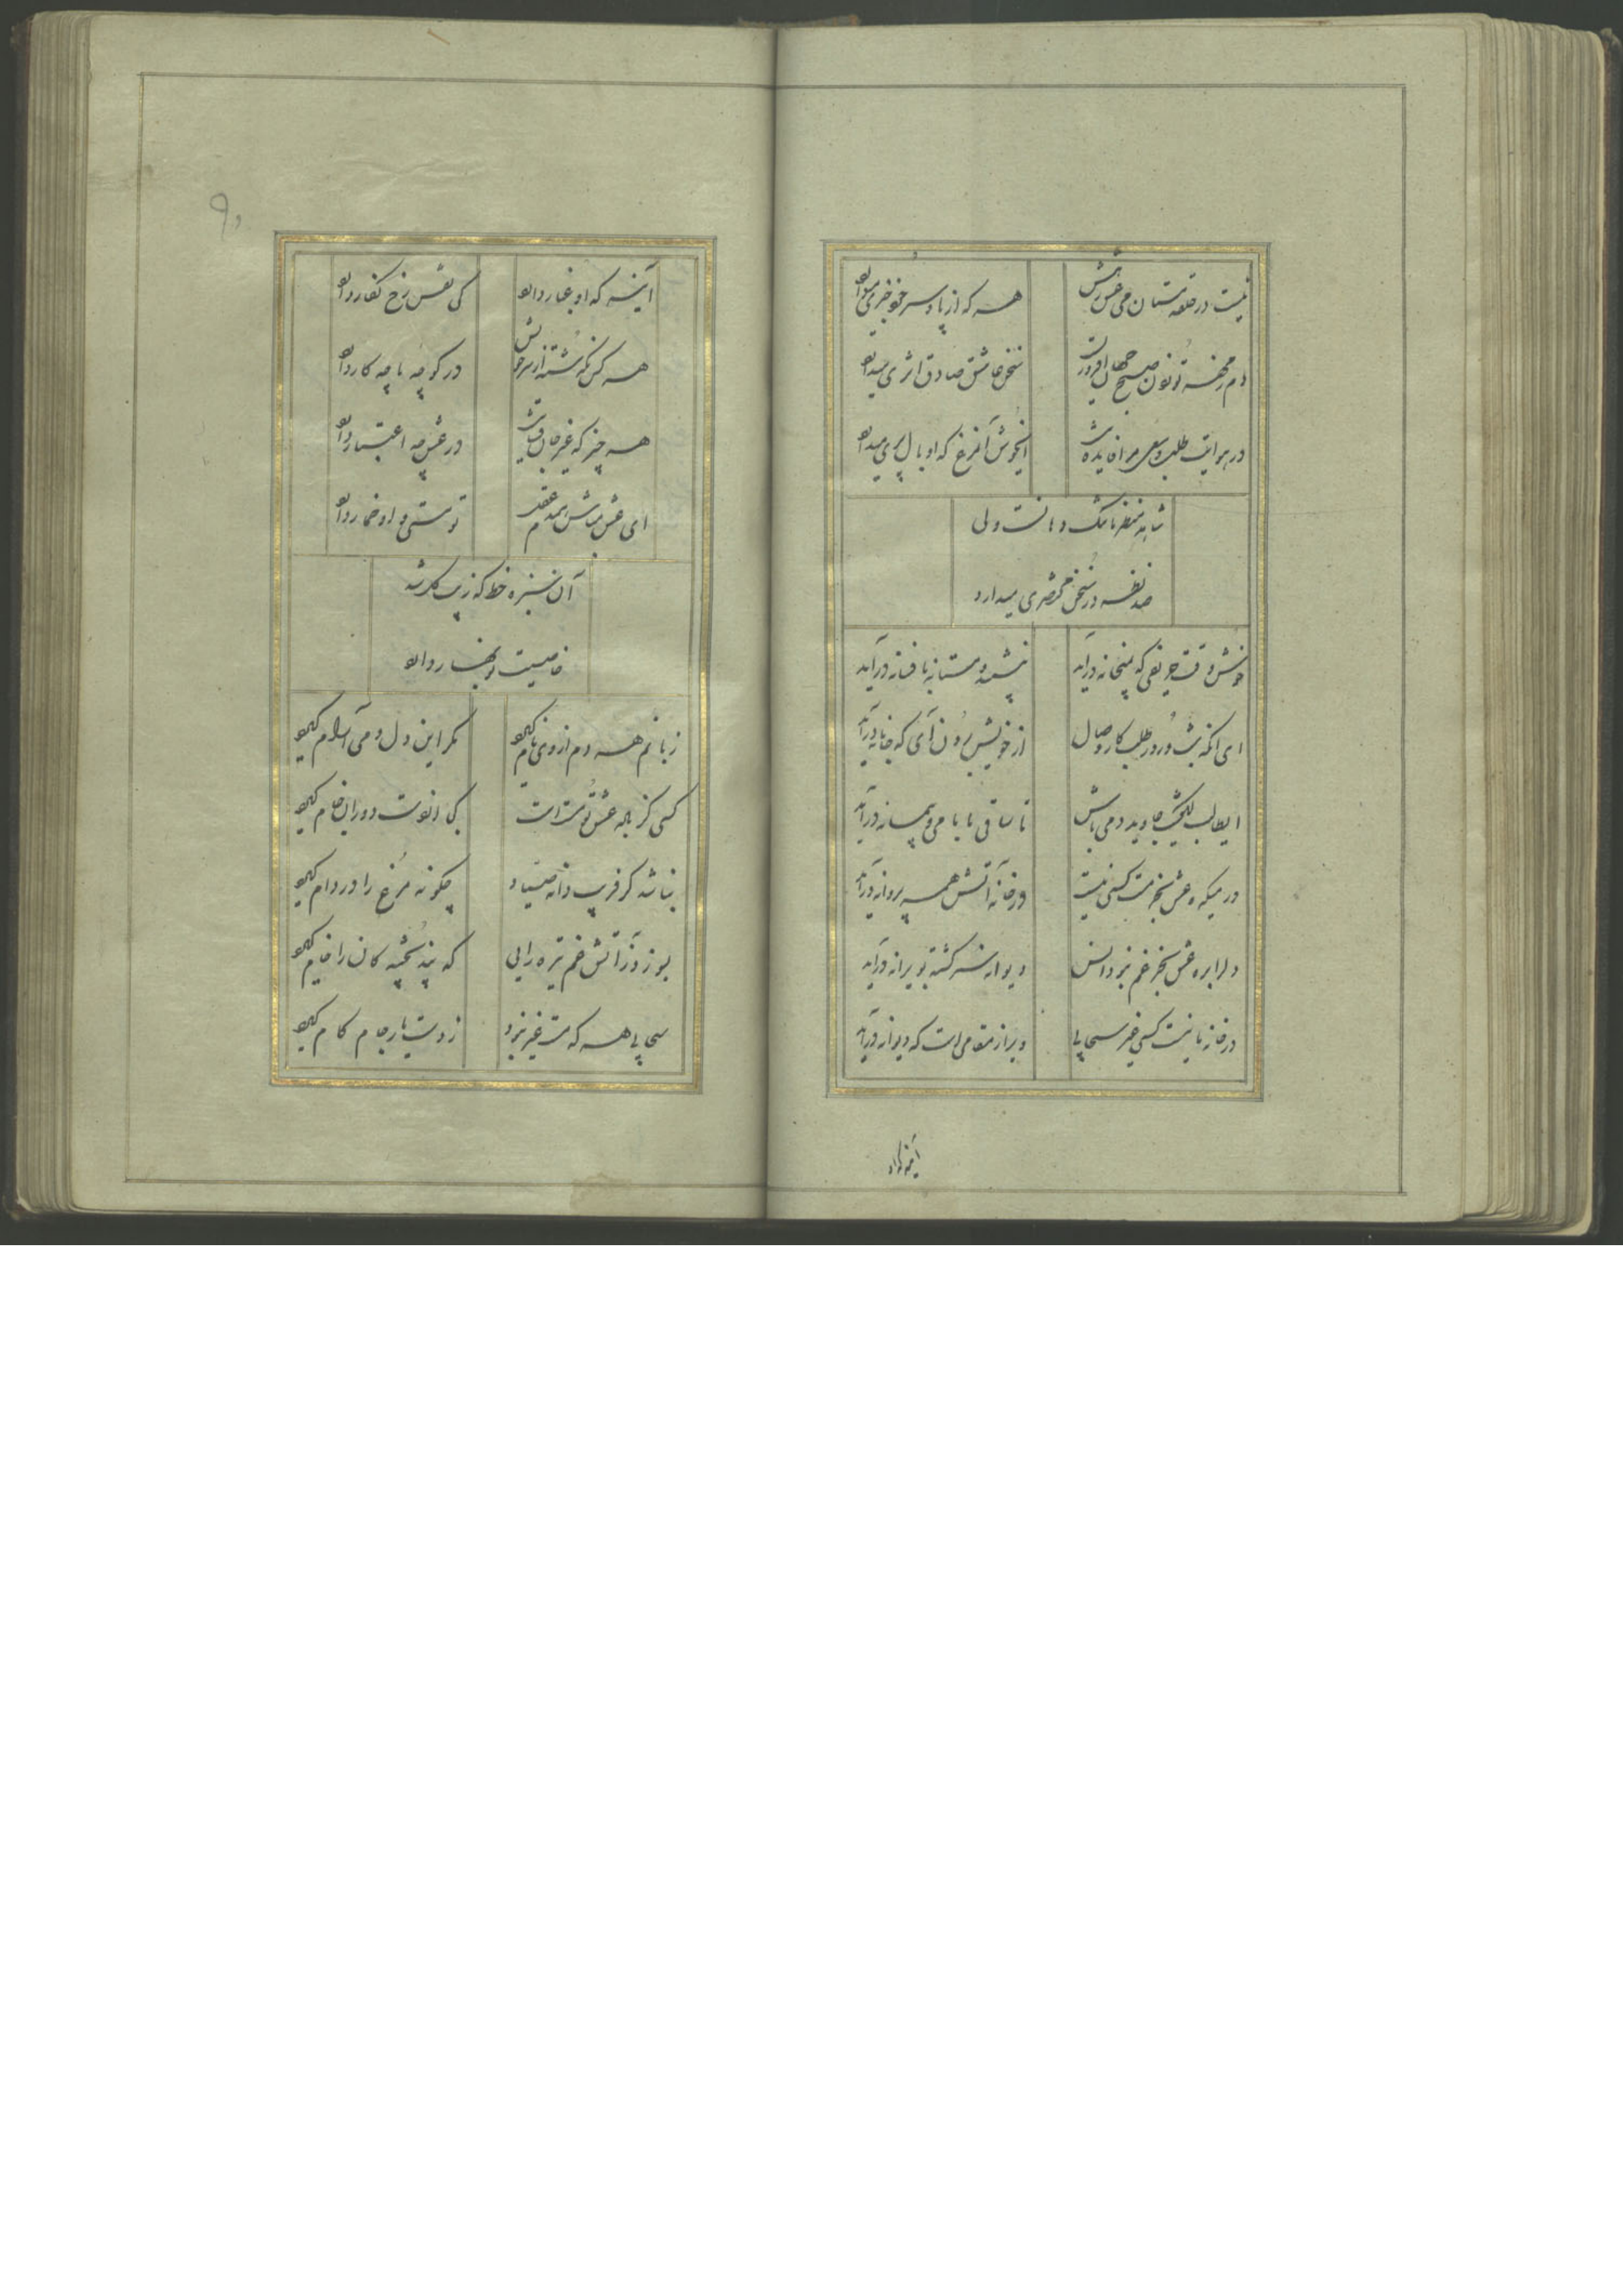 نیست در حلقه مستان می عشقش
هر که از پا و سر خود خبری میدارد
دم
تو چون صبح جهان افروزست
سخن عاشق صادق اثری میدارد
در هوایت طلب و سعی مرا فایده
ایخوش آنمرغ که او بال پری میدارد
شاهد
ما تنک دهانست ولی
صد
در سخن مختصری میدارد
خوش وقت حریفی که بمیخانه درآید
مستانه بافسانه درآید
ای آنکه
در طلب کار وصال
از خویش برون آی که جانانه درآید
ایطالب
جاوید دمی باش
تا ساقی ما با می و پیمانه درآید
در میکده عشق بجز مست کسی نیست
در خانه آتش همه پروانه درآید
دل را بره عشق بجز غم نبرد انس
دیوانه سرگشته بویرانه درآید
در خانه ما نیست کسی غیر سحابی
ویرانه مقامی است که دیوانه درآید
آینه که او
آینه که او غبار دارد
کی نقش رخ نگار دارد
هر کس نگذشته از سر خویش
در کوچه ما چه کار دارد
هر چیز که غیر جان
در عشق چه اعتبار دارد
ای عشق مباش همدم عقل
تو مستی و او خمار دارد
آن سبزه خط که زیب گل شد
خاصیت نوبهار دارد
زبانم هر دم از وی نام گیرد
مگر این دل دمی آرام گیرد
کسی کز باده عشق تو مست است
کی از دست دوران جام گیرد
نباشد گر فریب دانه صیاد
چگونه مرغ را در دام گیرد
بسوزد ز آتش غم تیره رایی
که پند پختگان را خام گیرد
سحابی هر که مست غیر نبود
ز دست یار جام کام گیرد